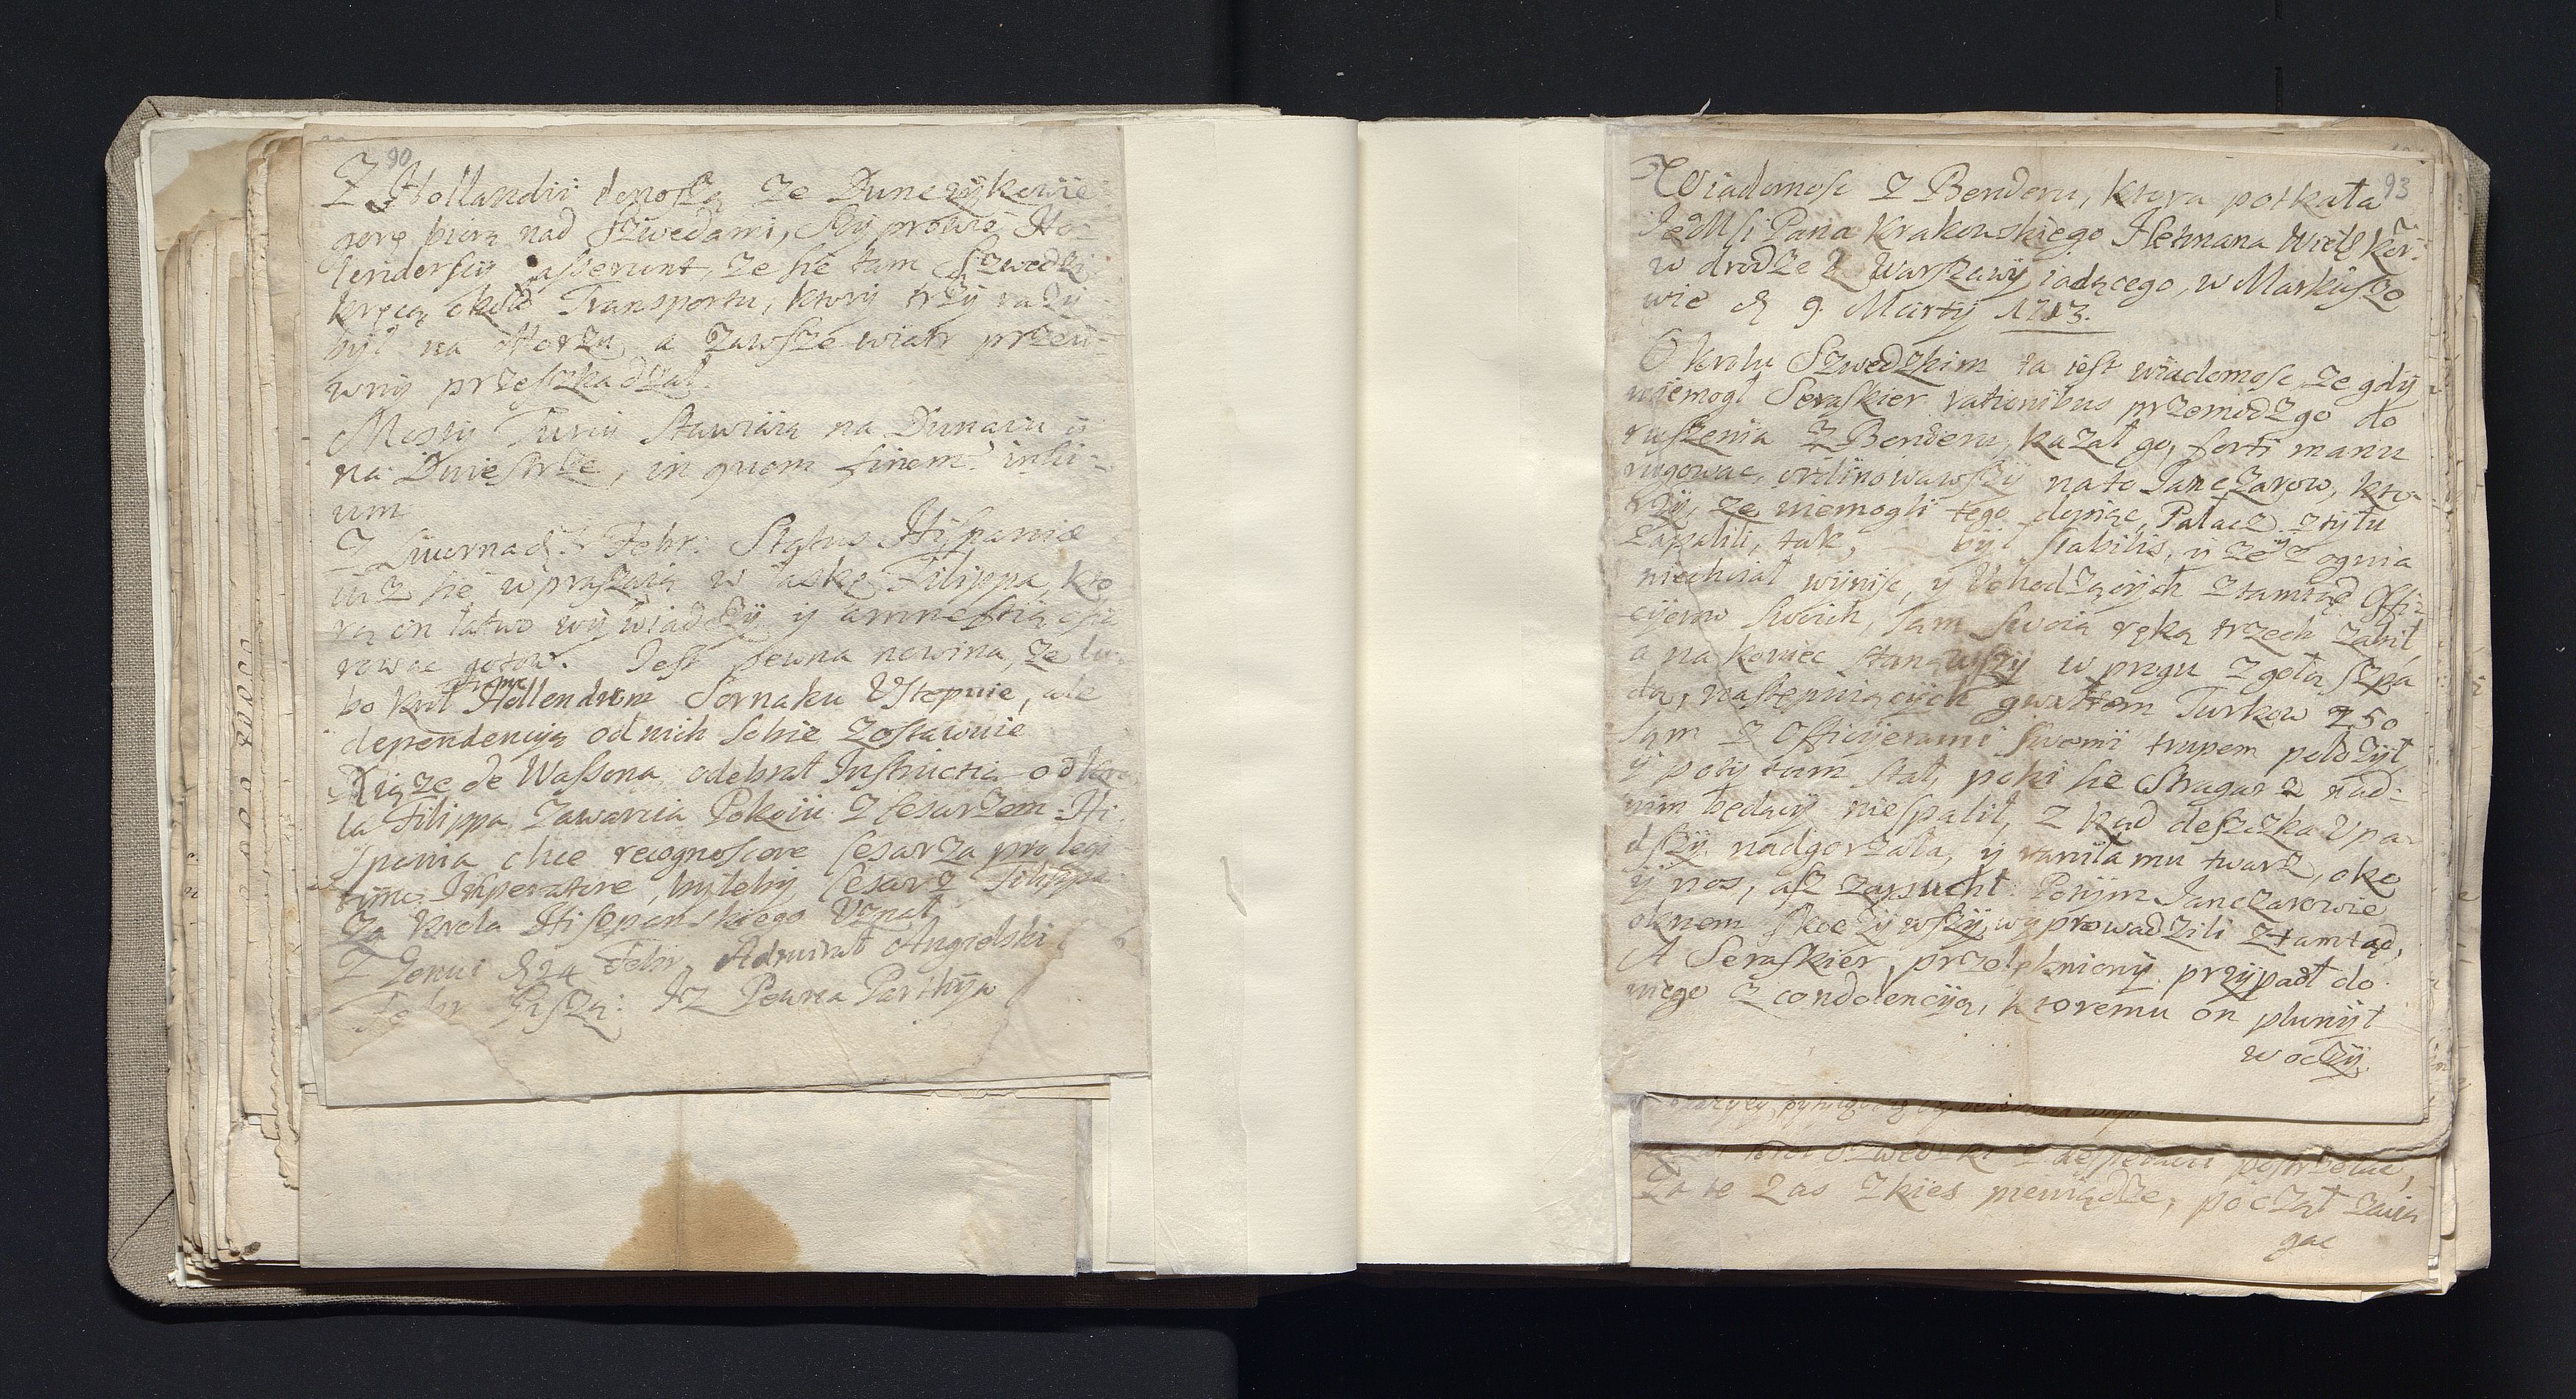 90
Z Hollandii donoszą ze Dunczykowie
gorę biorą nad Szwedami, Ho-
lendersii asserunt, ze sie tam Szwedzi
kręcą około Transportu, ktory trzy razy
był na Morzu a zawsze wiatr przeci-
wny przeszkadzał.
Mosty Turcy stawiaią na Dunaiu y
na Dniestrze, in quem finem?
Febr: Status Hispaniæ
iuz sie wpraszaią w łaskę Filippa, kto
rą on łatwo wyswiadczy y amnestią ofia
rowac gotow. Jest pewna nowina, ze lu-
bo krol Hollendrom Vstępuie, ale
dependencyą od nich sobie zostawuie
Xiąze de Wassona odebrał Instructią od kro
la Filippa zawarcia Pokoiu z Cesarzem Hi
spania chce recognoscere Cesarza pro legi
timo Imperatore, byleby Cesarz Filippa
za krola Hiszpanskiego Vznał
Z Genui d 24 Febr. Admirał Angielski
Febr Piszą: Iz Pewna Parthya
93
Wiadomosc z Benderu, ktora potkała
JeMsci Pana Krakowskiego Hetmana Wielk kor:
w drodze z Warszawy iadącego, w Markuszo
wie d 9. Marty 1713.
O krolu Szwedzkim ta iest wiadomosc, ze gdy
niemogł Seraskier rationibus przemodz go do
ruszenia z Benderu, kazał go, forti manu
rugowac, ordinowawszy na to Janczarow, kto-
rzy, ze niemogli tego dopiąc, Palacz z tyłu
zapalili, tak, był stabilis, y ze z ognia
niechciał wynisc, y Vchodzących ztamtąd Offi-
cyerow swoich, sam swoią ręką trzech zabił,
a na koniec stanąwszy w progu z gołą szpa
dą, następuiących gwałtem Turkow 250
sam z Officyerami swemi trupem położył,
y poty tam stał, poki sie Stragarz nad-
nim będący niespalił, z kąd deszczka Vpa-
dszy nadgorzała, y raniła mu twarz, oko
y nos, asz zapuchł. Potym Janczarowie
oknem skoczywszy, wyprowadzili ztamtąd,
A Seraskier, przelękniony przypadł do
niego z condolencyą, ktoremu on plunył
w oczy.
Szwedzki postrzelac,
za te zas zkies pieniądze, począł zacią
gac